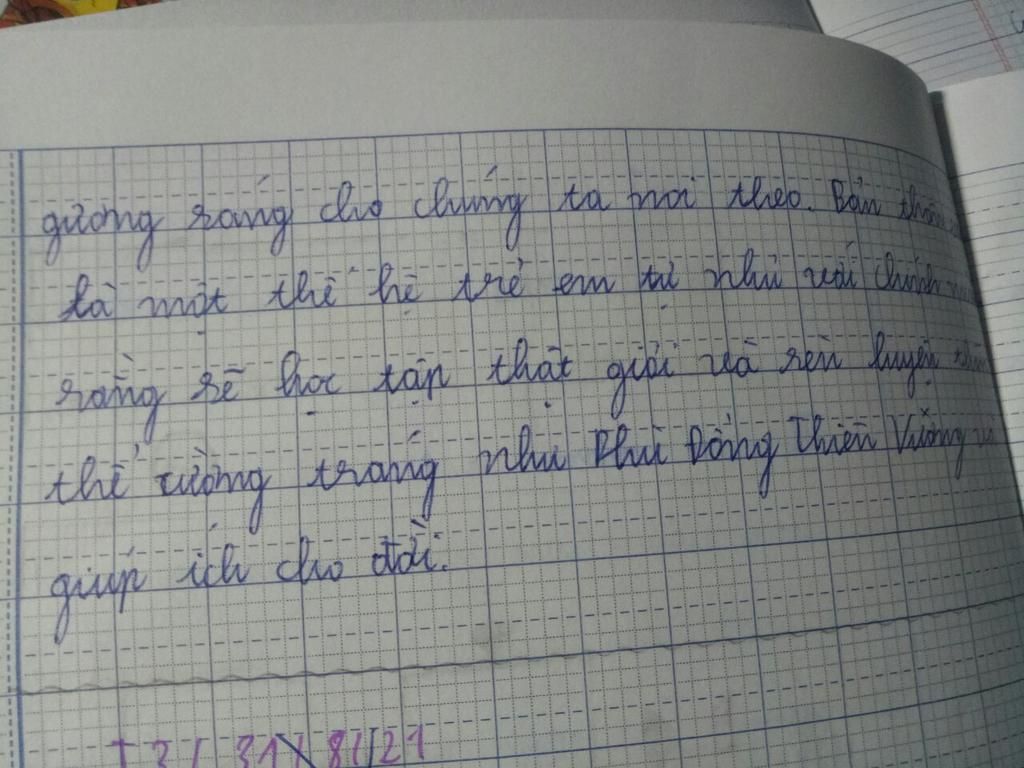 gương sáng cho chúng ta noi theo. Bản thân
là một thế hệ trẻ em tự nhủ với chính
rằng sẽ học tập thật giỏi và rèn luyện
thể cường tráng như Phù Đổng Thiên Vương
giúp ích cho đời.
T3 / 31 \ 8 / 21